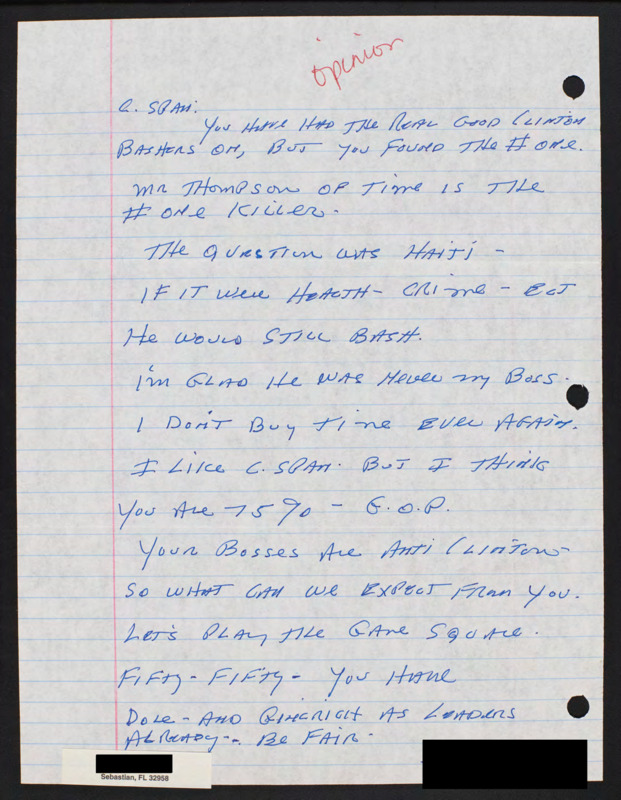 opinion
C. SPAN.
You HAVE HAD THE REAL GOOD CLINTON
BASHERS ON, BUT YOU FOUND THE # ONE.
MR THOMPSON OF TIME IS THE
# ONE KILLER.
THE QUESTION WAS HAITI -
IF IT WERE HEALTH - CRIME - ECT
HE WOULD STILL BASH.
I'M GLAD HE WAS NEVER MY BOSS.
I DON'T BUY TIME EVER AGAIN.
I LIKE C. SPAN. BUT I THINK
YOU ARE 75% - G.O.P.
YOUR BOSSES ARE ANTI CLINTON -
SO WHAT CAN WE EXPECT FROM YOU.
LET'S PLAY THE GAME SQUARE.
FIFTY - FIFTY - YOU HAVE
DOLE - AND GINGRICH AS LEADERS
ALREADY - - BE FAIR -
Sebastian, FL 32958